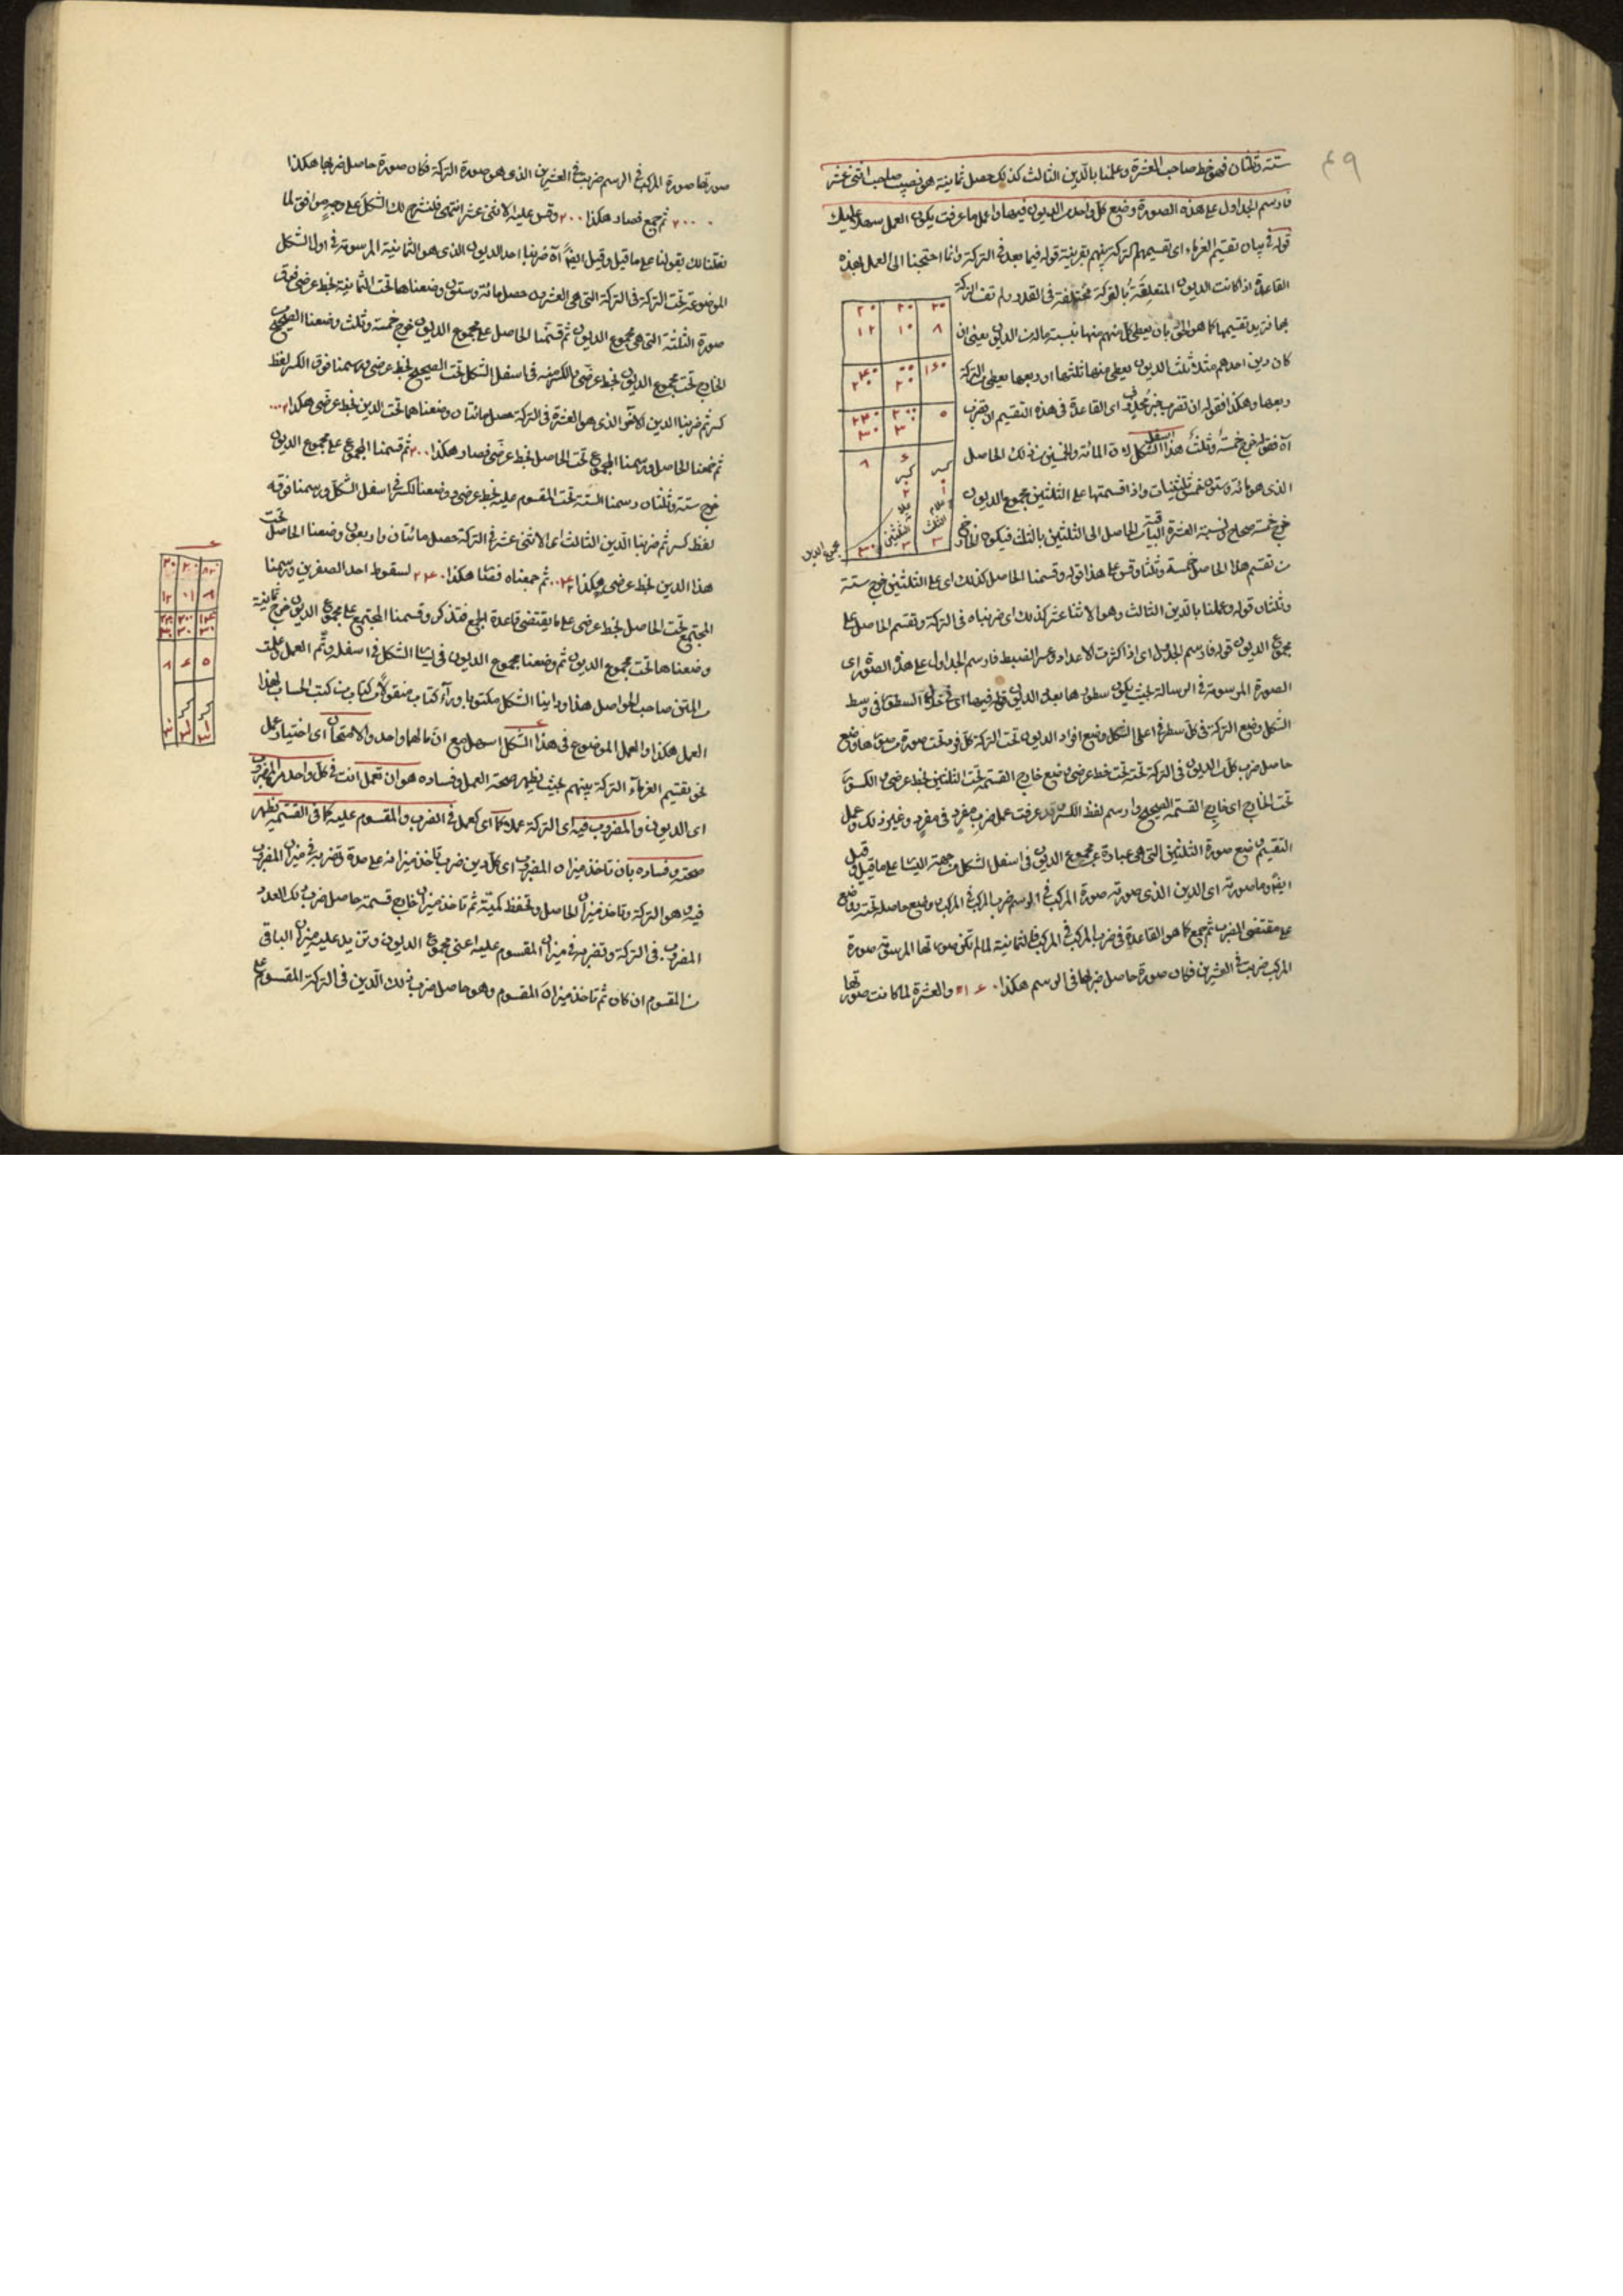 ٤٩
ستة وثلثان فهو حظ صاحب العشرة وعملنا بالدين الثالث كذلك حصل ثمانية هو نصيب صاحب اثنى عشر
فارسم الجداول على هذه الصورة وضع كل واحد من الديون فيها واعمل ما عرفت يكون العمل سهلا عليك
قوله فى بيان تقسيم الغرماء اى تقسيمهم التركة بينهم بقرينة قوله فيما بعد فى التركة وانما احتجنا الى العمل بهذه
القاعدة اذا كانت الديون المتعلقة بالتركة مختلفة فى القدر ولم تف التركة
بها فنريد تقسيمها كما هو الحق بان يعطى كل منهم منها بنسبة ماله من الديون يعنى ان
كان دين احدهم مثلا ثلث الديون يعطى منها ثلثها او ربعها يعطى من التركة
ربعها وهكذا فقوله ان تضرب خبر محذوف اى القاعدة فى هذه التقسيم ان تضرب
آه فقوله خرج خمسة وثلث هذا اسفل الشكل لان المائة والخمسين من ذلك الحاصل
الذى هو مائة وستون خمس ثلثينيات واذا قسمتها على الثلثين مجموع الديون
خرج خمسة صحاح ونسبة العشرة الباقية من الحاصل الى الثلثين بالثلث فيكون الخارج
من تقسيم هذا الحاصل خمسة وثلثا وقس على هذا قوله وقسمنا الحاصل كذلك اى على الثلثين خرج ستة
وثلثان قوله وعملنا بالدين الثالث وهو الاثنا عشر كذلك اى ضربناه فى التركة وتقسم الحاصل على
مجموع الديون قوله فارسم الجداول اى اذا كثرت الاعداد وعسر الضبط فارسم الجداول على هذه الصورة اى
الصورة المرسومة فى الرسالة بحيث يكون سطورها بعدد الديون قوله فيها اى فى تلك السطور كما فى وسط
الشكل وضع التركة فى كل سطر فى اعلى الشكل وضع افراد الديون تحت التركة كل فى تحت صورة من صورها وضع
حاصل ضرب كل من الديون فى التركة تحته تحت خط عرضى وضع خارج القسمة تحت الثلثين بخط عرضى والكسور
تحت الخارج اى خارج القسمة الصحيح وارسم لفظ الكسر وقد عرفت عمل ضرب مفرد فى مفرد وغير ذلك وعمل
التقسيم وضع صورة الثلثين التى هى عبارة عن مجموع الديون فى اسفل الشكل من جهة اليسار على ما قيل وقيل
ايضا وما صورته اى الدين الذى صورته صورة المركب فى الرسم ضرب المركب فى المركب وضع حاصله تحته واضع
على مقتضى الضرب ثم جمع كما هو القاعدة فى ضرب المركب فى المركب فالثمانية لما لم تكن صورتها المرسومة صورة
المركب ضربت فى العشرين فكان صورة حاصل ضربها فى الرسم هكذا ١٦٠ والعشرة لما كانت صورتها
٢٠ ٢٠ ٢٠
٨ ١٠ ١٢
١٦٠
٥
مجموع الديون
صورتها صورة المركب فى الرسم ضربت فى العشرين الذى هو صورة التركة فكان صورة حاصل ضربها هكذا
٢٠٠٠ ثم جمع فصار هكذا ٢٠٠ وقس عليه الاثنى عشر انتهى فلنشرح لك الشكل على وجه موافق لما
نقلنا لك بقولنا على ما قيل وقيل ايضا آه ضربنا احد الديون الذى هو الثمانية المرسومة فى اول الشكل
الموضوعة تحت التركة فى التركة التى هى العشرون حصل مائة وستون وضعناها تحت الثمانية بخط عرضى فوق
صورة الثلثة التى هى مجموع الديون ثم قسمنا الحاصل على مجموع الديون خرج خمسة وثلث وضعنا الصحيح
الخارج تحت مجموع الديون بخط عرضى والكسر منه فى اسفل الشكل تحت الصحيح بخط عرضى ورسمنا فوق الكسر لفظ
كسر ثم ضربنا الدين الاخر الذى هو العشرة فى التركة حصل مائتان وضعناهما تحت الدين بخط عرضى هكذا ٢٠٠٠
ثم جمعنا الحاصل ورسمنا المجموع تحت الحاصل بخط عرضى فصار هكذا ٢٠٠ ثم قسمنا المجموع على مجموع الديون
خرج ستة وثلثان رسمنا الستة تحت المقسوم عليه بخط عرضى ووضعنا الكسر فى اسفل الشكل ورسمنا فوقه
لفظ كسر ثم ضربنا الدين الثالث اى الاثنى عشر فى التركة حصل مائتان واربعون وضعنا الحاصل تحت
هذا الدين بخط عرضى هكذا ٠٠٢٤ ثم جمعناه فقلنا هكذا ٢٤٠ لسقوط احد الصفرين ورسمنا
المجتمع تحت الحاصل بخط عرضى على ما يقتضى قاعدة الجمع فتذكر وقسمنا المجتمع على مجموع الديون خرج ثمانية
وضعناها تحت مجموع الديون ثم وضعنا مجموع الديون فى يسار الشكل فى اسفله وتم العمل وعلمت
من المتن صاحب الحواصل هذا ورأينا الشكل مكتوبا وراء كتاب منقولا من كتاب من كتب الحساب لهذا
العمل هكذا والعمل الموضوع فى هذا الشكل اسهل مع ان مآلهما واحد والامتحان اى اختبار عمل
نحو تقسيم الغرماء التركة بينهم بحيث يظهر صحة العمل وفساده هو ان تعمل انت فى كل واحد من المضروب
اى الديون والمضروب فيه اى التركة عملا كما اى كعمل فى الضرب والمقسوم عليه كما فى القسمة يظهر
صحته وفساده بان تاخذ ميزان المضروب اى كل دين ضرب تاخذ ميزانه على حدة وتضربه فى ميزان المضروب
فيه وهو التركة وتاخذ ميزان الحاصل وتحفظ كميته ثم تاخذ ميزان خارج قسمة حاصل ضرب ذلك العدد
المضروب فى التركة وتضربه فى ميزان المقسوم عليه اعنى مجموع الديون وتزيد عليه ميزان الباقى
من المقسوم ان كان ثم تاخذ ميزان المقسوم وهو حاصل ضرب ذلك الدين فى التركة المقسوم على